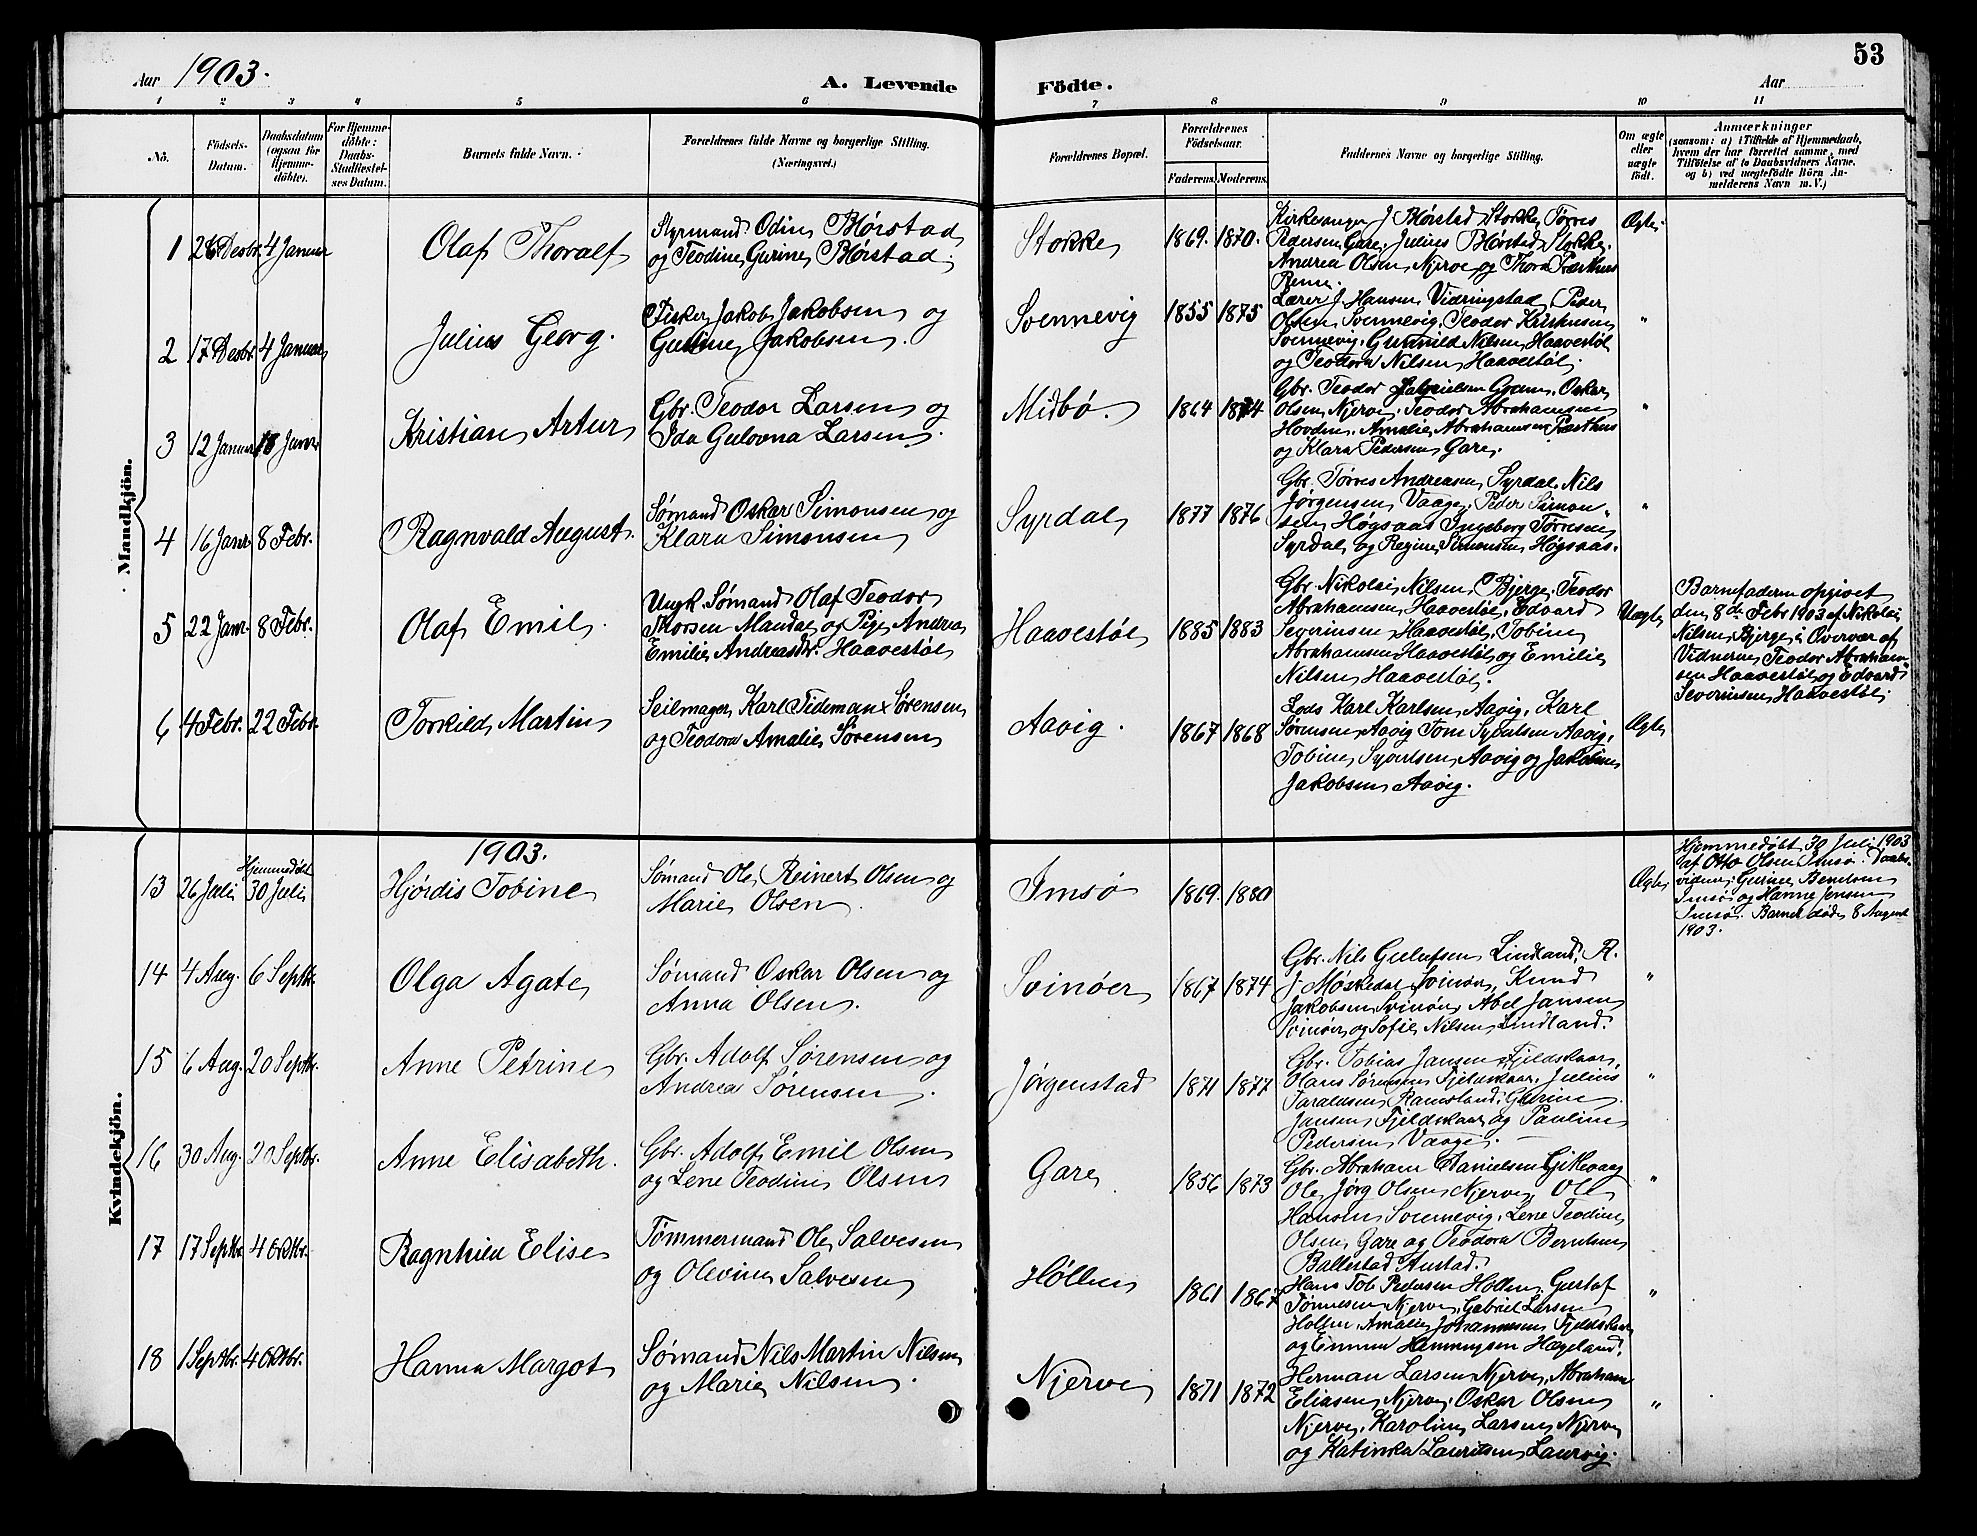 53
Aar 1903.
A. Levende Födte.
Aar
1 2 3 4 5 6 7 8 9 10 11
No.
Födsels-Datum.
Daabsdatum (ogsaa for Hjemme-döbte).
For Hjemme-döbte: Daabs-Stadfæstel-ses Datum.
Barnets fulde Navn.
Forældrenes fulde Navne og borgerlige Stilling. (Næringsvei.)
Forældrenes Bopæl.
Forældrenes Födselsaar.
Faderens. Moderens.
Faddernes Navne og borgerlige Stilling.
Om ægte eller uægte födt.
Anmærkninger
(saasom: a) i Tilfælde af Hjemmedaab,
hvem der har forrettet samme, med
Tilföielse af to Daabsvidners Navne,
og b) ved uægtefödte Börn An-
melderens Navn m. V.)
Mandkjön.
1 26 Desbr. 4 Januar Olaf Thoralf
Styrmand Odin Børstad
og Teodine Gurine Børstad.
Stokke 1869. 1870.
Kirkesanger J Børstad Stokke, Tørres
Pedersen Gare, Julius Børstad Stokke,
Andrea Olsen, Njerve og Thora Præsthus
Renne.
Ægte.
2 17 Desbr 4 Januar Julius Georg.
Fisker Jakob Jakobsen og
Guline Jakobsen.
Svennevig 1855 1875
Lærer J. Hansen Vidringstad, Peder
Olsen, Svennevig, Teodor Kristensen
Svennevig, Gunnild Nilsen, Haavestøl
og Teodora Nilsen Haavestøl.
"
3 12 Januar 18 Janr Kristian Artur
Gbr. Teodor Larsen og
Ida Gulovna Larsen.
Midbø. 1864 1874
Gbr. Teodor Gabrielsen Gram, Oskar
Olsen, Njerve, Teodor Abrahamsen
Hovden, Amalie Abrahamsen Præsthus
og Klara Pedersen Gare.
"
4 16 Janr 8 Febr. Ragnvald August.
Sømand Oskar Simonsen og
Klara Simonsen
Syrdal 1877 1876
Gbr. Tørres Andreasen, Syrdal, Nils
Jørgensen, Vaage, Peder Simon-
sen Høgsaas Ingeborg Tørresen
Syrdal og Regine Simonsen Høgsaas.
"
5 22 Janr. 8 Febr. Olaf Emil.
Ungk. Sømand Olaf Teodor
Thorsen Mandal og Pige Andrea
Emilie Andreasdtr. Haavestøl
Haavestøl 1885 1883
Gbr. Nikolai Nilsen, Bjerge, Teodor
Abrahamsen, Haavestøl, Edvard
Severinsen, Haavestøl, Tobine
Abrahamsen Haavestøl og Emilie
Nilsen Haavestøl.
Uægte
Barnefaderen opgivet
den 8de Febr 1903 af Nikolai
Nilsen, Bjerge i Overvær af
Vidnerne Teodor Abraham-
sen Haavestøl og Edvard
Severinsen, Haavestøl.
6 4 Febr. 22 Febr. Torkild Martin
Seilmager Karl Tideman Sørensen
og Teodora Amalie Sørensen
Aavig. 1867 1868
Lods Karl Karlsen, Aavig, Karl
Sørensen, Aavig Tom Syvertsen Aavig,
Tobine Syvertsen, Aavig og Jakobine
Jakobsen, Aavig.
Ægte
Kvindekjön.
1903.
13 26 Juli Hjemmedøbt 30 Juli Hjørdis Tobine
Sømand Ole Reinert Olsen og
Marie Olsen.
Imsø 1869. 1880
Ægte
Hjemmedøbt 30 Juli 1903
af Otto Olsen Imsø. Daabs-
vidner, Gurine Bendsen
Imsø og Hanne Jensen
Imsø. Barnet døde 8 August
1903.
14 4 Aug. 6 Septbr. Olga Agate
Sømand Oskar Olsen og
Anna Olsen.
Svinøer 1867 1874
Gbr. Nils Gulufsen Lindland, R.
J. Møskedal Svinøer, Knud
Jakobsen, Svinøer, Abel Jansen
Svinøer og Sofie Nilsen Lindland.
"
15 6 Aug. 20 Septbr. Anne Petrine
Gbr. Adolf Sørensen og
Andrea Sørensen.
Jørgenstad 1871 1877
Gbr. Tobias Jansen, Fjeldskaar,
Olaus Sørensen, Fjeldskaar, Julius
Taraldsen, Ramsland, Gurine
Jansen, Fjeldskaar og Pauline
Pedersen, Vaage.
"
16 30 Aug. 20 Septbr. Anne Elisabeth.
Gbr. Adolf Emil Olsen
og Lene Teodine Olsen
Gare 1856 1873
Gbr. Abraham Danielsen Gjkevaag
Ole Jørg Olsen, Njerve, Ole
Hansen, Svennevig, Lene Teodine
Olsen, Gare og Teodora Berntsen
Ballestad Austad.
"
17 17 Septbr 4 Oktbr. Ragnhild Elise
Tømmermand Ole Salvesen
og Olevine Salvesen
Høllen 1861 1867
Hans Tob. Pedersen Høllen, Gustaf
Tønnesen, Njerve, Gabriel Larsen
Høllen, Amalie Johannesen, Fjeldskaar
og Emma Hemmingsen Hægeland.
"
18 1 Septbr. 4 Oktbr. Hanna Margot
Sømand Nils Martin Nilsen
og Marie Nilsen.
Njerve 1871 1872
Herman Larsen, Njerve, Abraham
Eliasen, Njerve, Oskar Olsen
Njerve, Karoline Larsen, Njerve
og Katinka Lauritsen, Laurvig.
"